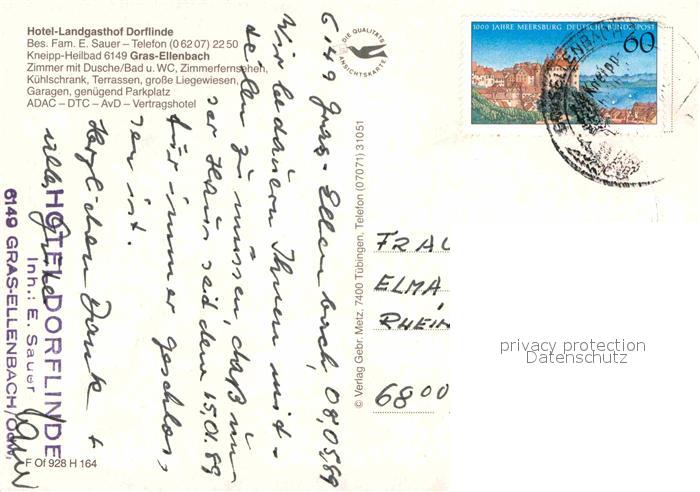 Hotel-Landgasthof Dorflinde
Bes. Fam. E. Sauer – Telefon (0 62 07) 22 50
Kneipp-Heilbad 6149 Gras-Ellenbach
Zimmer mit Dusche/Bad u. WC, Zimmerfernsehen,
Kühlschrank, Terrassen, große Liegewiesen,
Garagen, genügend Parkplatz
ADAC – DTC – AvD – Vertragshotel
6149 Gras-Ellenbach, 08.05.89
Wir bedauern Ihnen mit-
teilen zu müssen, daß un-
ser Haus seid dem 15.01.89
für immer geschlos-
sen ist.
Herzlichen Dank +
alles Gute
Sauer
HOTEL DORFLINDE
Inh.: E. Sauer
6149 GRAS-ELLENBACH/Odw.
F Of 928 H 164
DIE QUALITÄTS
ANSICHTSKARTE
© Verlag Gebr. Metz, 7400 Tübingen, Telefon (07071) 31051
1000 JAHRE MEERSBURG DEUTSCHE BUNDESPOST
60
Kneipp
FRAU
ELMA
RHEIN
6800
privacy protection
Datenschutz